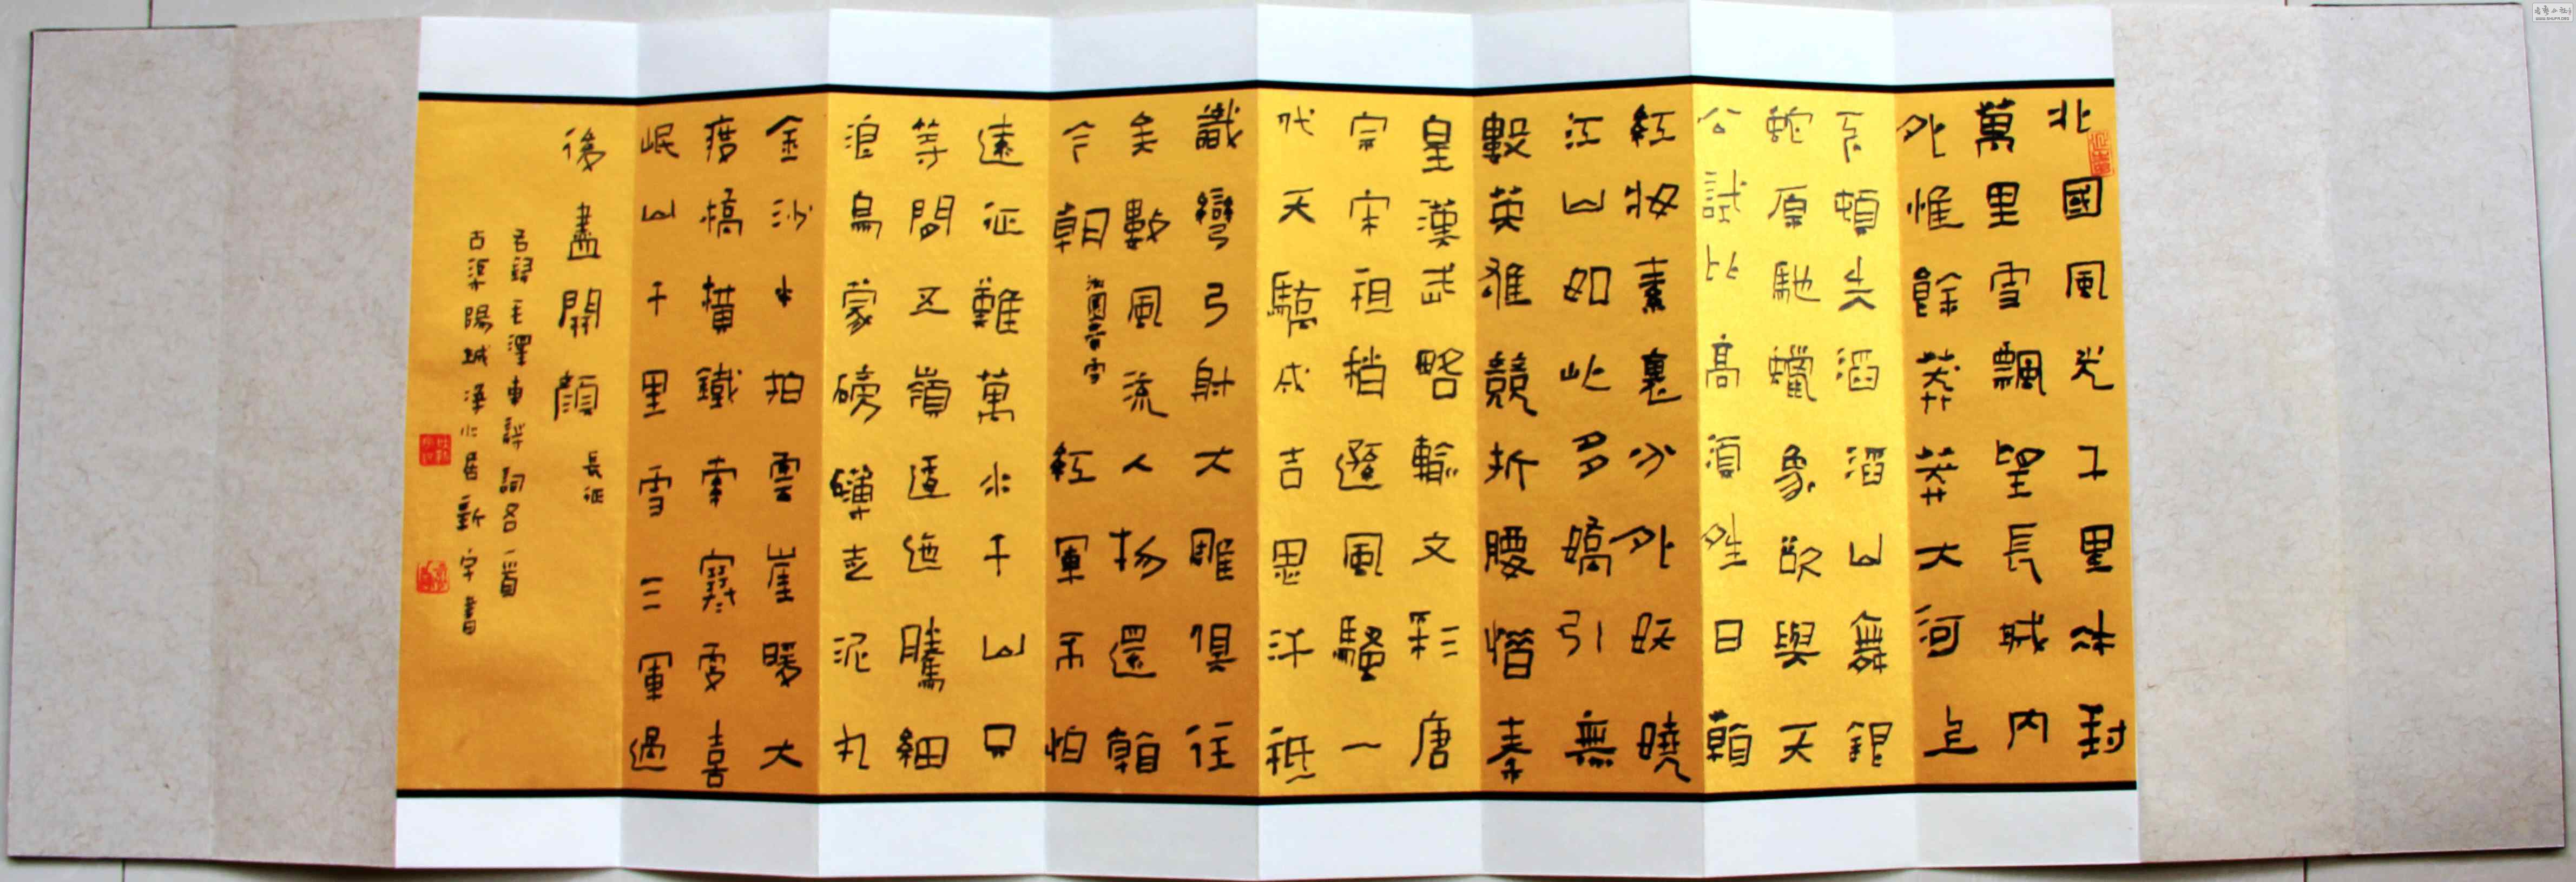 北國風光千里冰封
萬里雪飄望長城內
外惟餘莽莽大河上
下頓失滔滔山舞銀
蛇原馳蠟象欲與天
公試比高須晴日看
紅妝素裹分外妖嬈
江山如此多嬌引無
數英雄競折腰惜秦
皇漢武略輸文彩唐
宗宋祖稍遜風騷一
代天驕成吉思汗祗
識彎弓射大雕俱往
矣數風流人物還看
今朝 沁園春雪 紅軍不怕
遠征難萬水千山只
等閒五嶺逶迤騰細
浪烏蒙磅礴走泥丸
金沙水拍雲崖暖大
渡橋橫鐵索寒更喜
岷山千里雪三軍過
後盡開顏 長征
右錄毛澤東詩詞各一首
古 陽城 居新 書